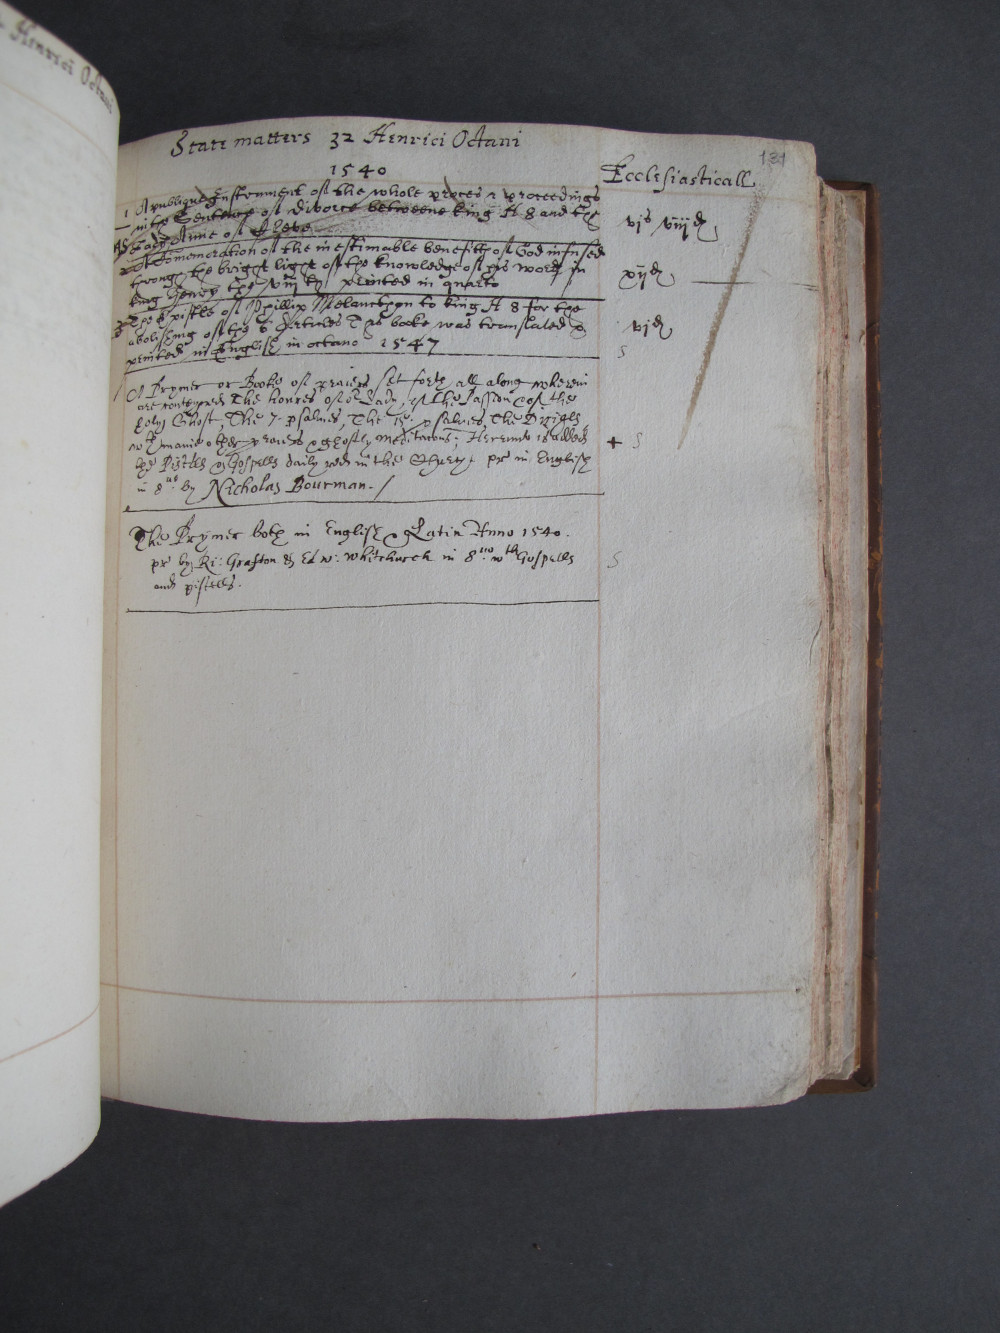 Henrici Octani
131
State matters 32 Henrici Octani
1540
Ecclesiasticall
1 A publique Instrument of the whole proces & proceedings
in the Sentence of divorce betweene king H 8 and the
Lady Anne of Cleve
vjs viijd
2 A Comemoration of the inestimable benefitts of God infused
throughe the bright light of the knowledge of his word in
king Henry the viij th printed in quarto
xijd
3 The Epistle of Phillip Melancthon to king H 8 for the
abolishing of the 6 Articles This booke was translated &
printed in English in octano 1547
vjd
S
A Prymer or Booke of praiers set forth all along wherein
are conteyned The houres of or Lady, of The Passion & of the
holy Ghost, The 7 psalmes, The 15 psalmes, The Dirige,
wth manie other praiers & ghostly meditacons: Hereunto is added
the Pistells & Gospells daily red in the Church pr in English
in 8no by Nicholas Bourman./
+ S
The Prymer both in English & Latin Anno 1540.
pr by Ri: Grafton & Edw: Whitchurch in 8no wth Gospells
and pistells.
S